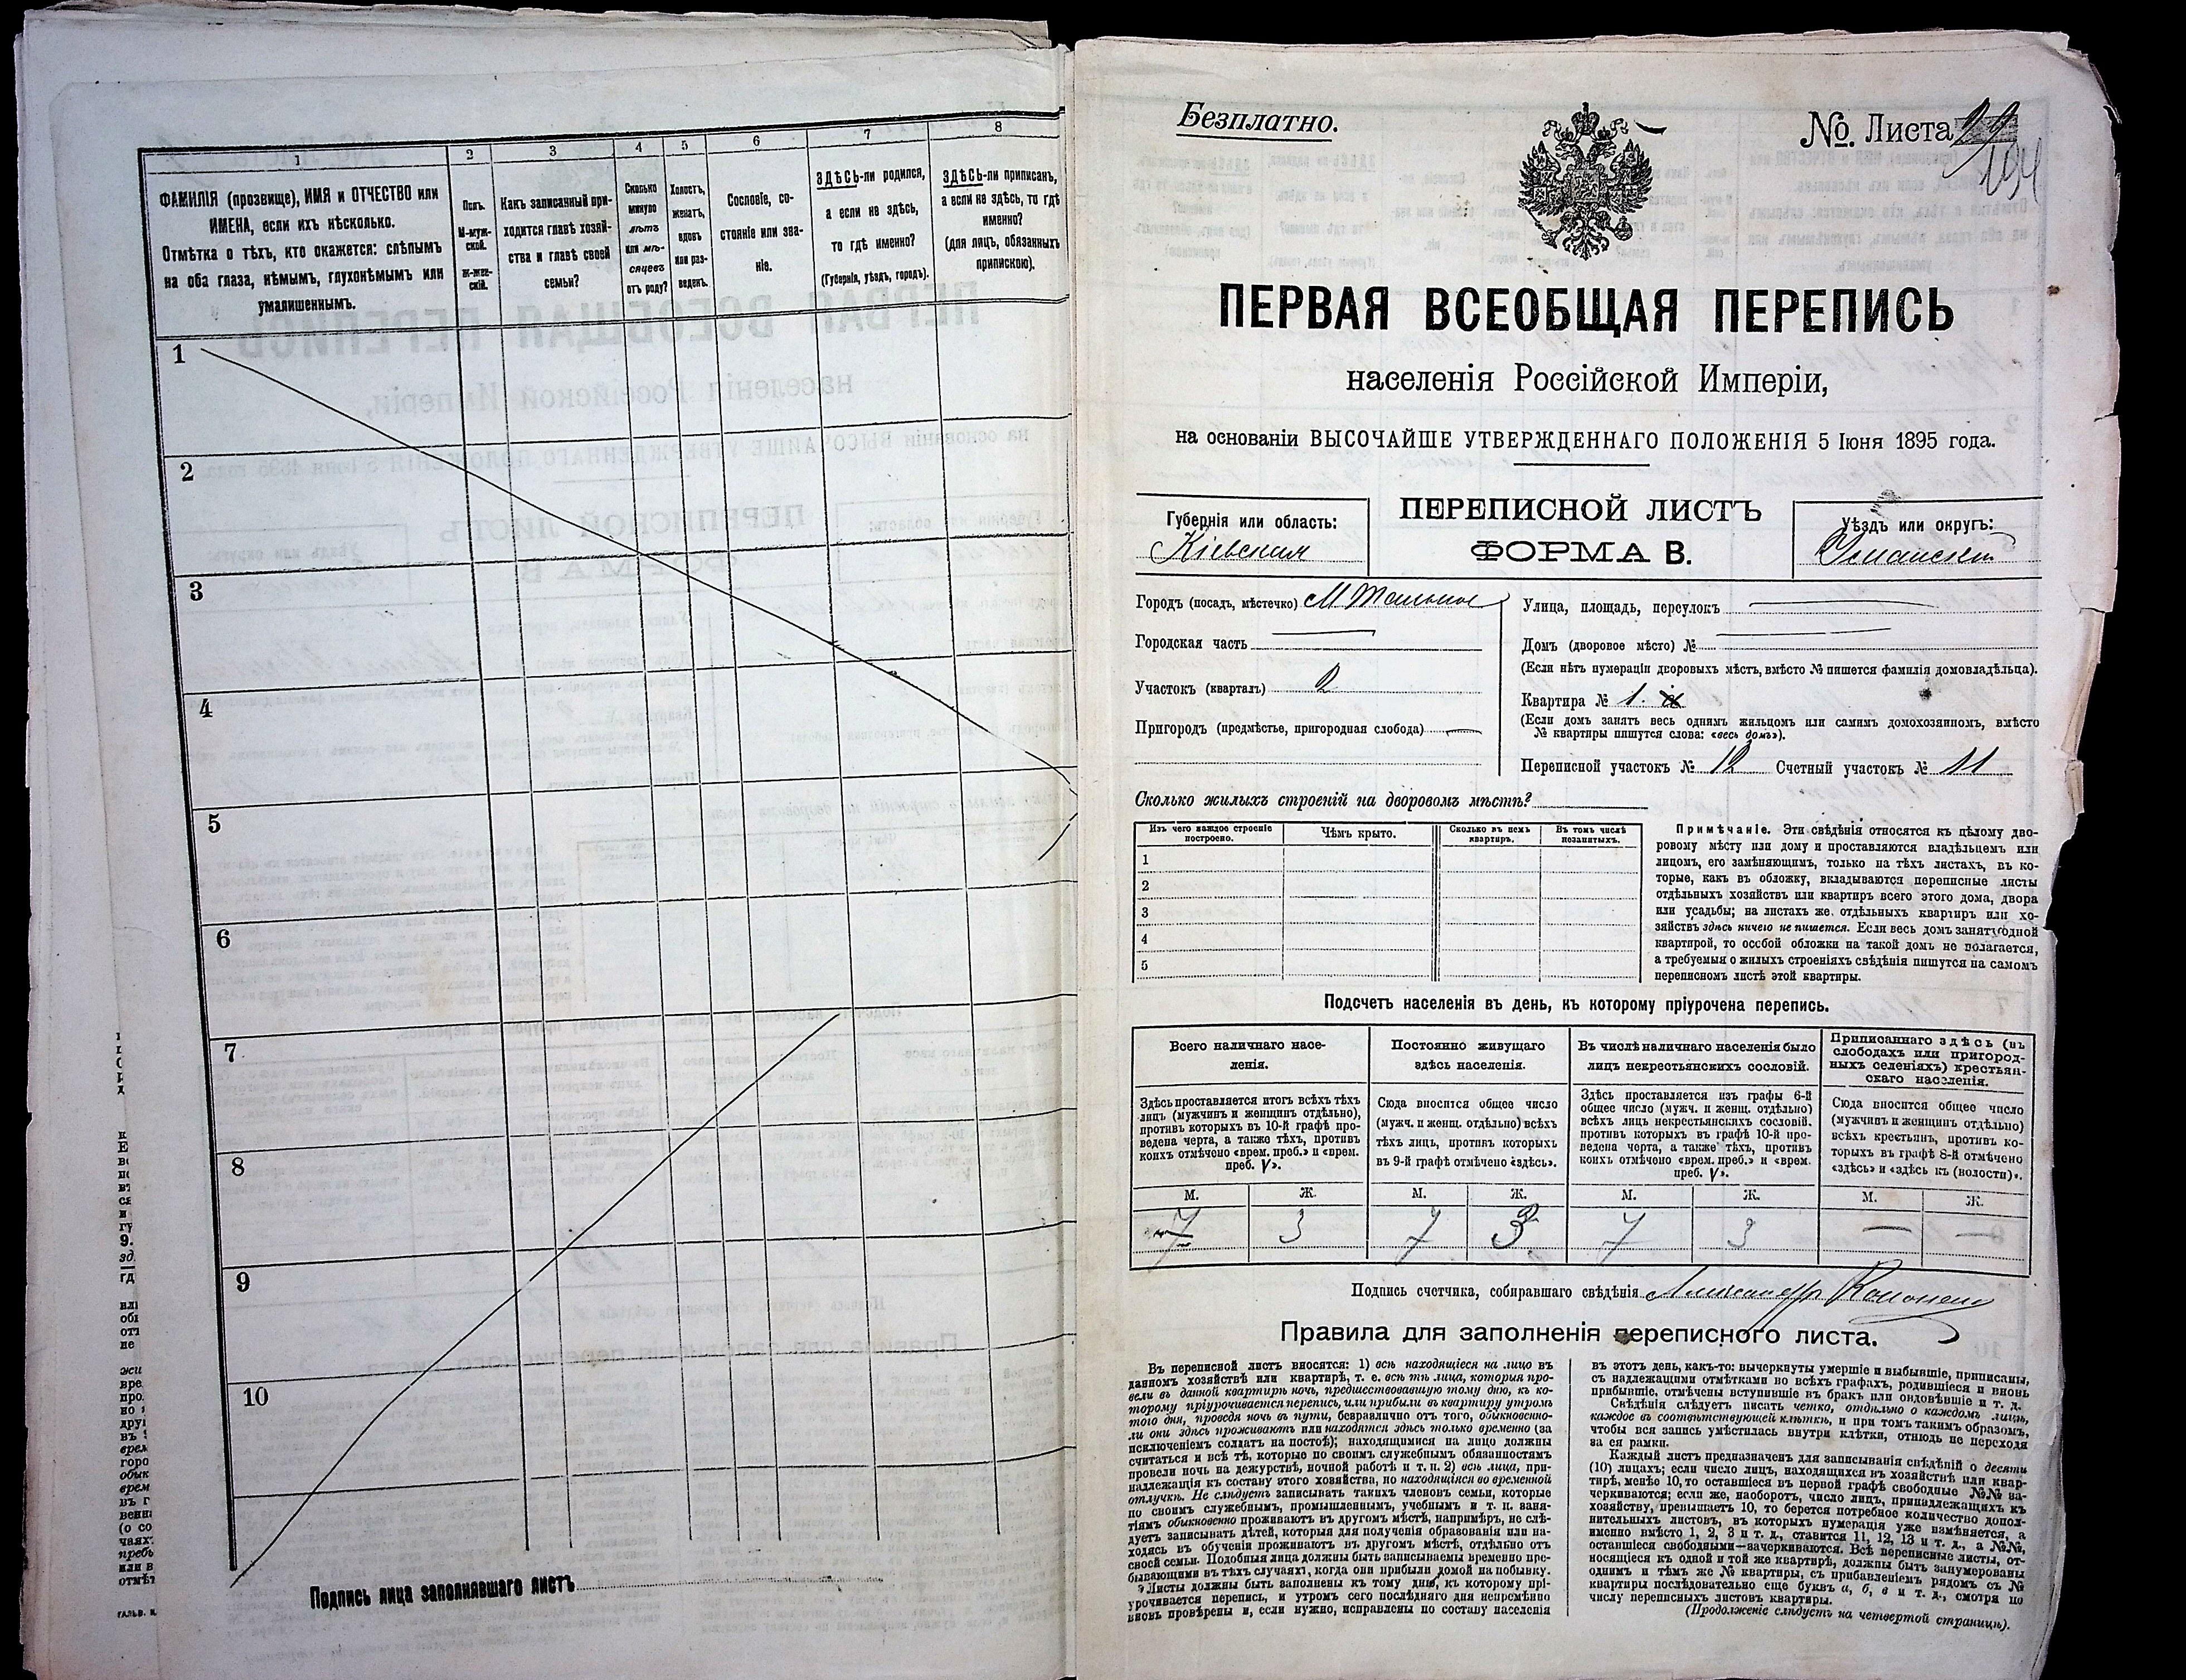 1
2
3
4
5
6
7
8
ФАМИЛІЯ (прозвище), ИМЯ и ОТЧЕСТВО или
ИМЕНА, если ихъ нѣсколько.
Отмѣтка о тѣхъ, кто окажется: слѣпымъ
на оба глаза, нѣмымъ, глухонѣмымъ или
умалишеннымъ.
Полъ.
М-муж-
ской.
Ж-жен-
скій.
Какъ записанный при-
ходится главѣ хозяй-
ства и главѣ своей
семьи?
Сколько
минуло
лѣтъ
или мѣ-
сяцевъ
отъ роду?
Холостъ,
женатъ,
вдовъ
или раз-
веденъ.
Сословіе, со-
стояніе или зва-
ніе.
ЗДѢСЬ-ли родился,
а если не здѣсь,
то гдѣ именно?
(Губернія, уѣздъ, городъ).
ЗДѢСЬ-ли приписанъ,
а если не здѣсь, то гдѣ
именно?
(для лицъ, обязанныхъ
припискою).
1
2
3
4
5
6
7
8
9
10
Подпись лица заполнявшаго листъ
Безплатно.
№. Листа
194
ПЕРВАЯ ВСЕОБЩАЯ ПЕРЕПИСЬ
населенія Россійской Имперіи,
на основаніи ВЫСОЧАЙШЕ УТВЕРЖДЕННАГО ПОЛОЖЕНІЯ 5 Іюня 1895 года.
Губернія или область:
Кіевская
ПЕРЕПИСНОЙ ЛИСТЪ
ФОРМА В.
Уѣздъ или округъ:
Уманскій
Городъ (посадъ, мѣстечко) М Тальное
Городская часть
Участокъ (кварталъ) 2
Пригородъ (предмѣстье, пригородная слобода)
Улица, площадь, переулокъ
Домъ (дворовое мѣсто) №
(Если нѣтъ нумераціи дворовыхъ мѣстъ, вмѣсто № пишется фамилія домовладѣльца).
Квартира № 1.
(Если домъ занятъ весь однимъ жильцомъ или самимъ домохозяиномъ, вмѣсто
№ квартиры пишутся слова: «весь домъ»).
Переписной участокъ № 12 Счетный участокъ № 11
Сколько жилыхъ строеній на дворовомъ мѣстѣ?
Изъ чего каждое строеніе
построено.
Чѣмъ крыто.
Сколько въ немъ
квартиръ.
Въ томъ числѣ
незанятыхъ.
1
2
3
4
5
Примѣчаніе. Эти свѣдѣнія относятся къ цѣлому дво-
ровому мѣсту или дому и проставляются владѣльцемъ или
лицомъ, его замѣняющимъ, только на тѣхъ листахъ, въ ко-
торые, какъ въ обложку, вкладываются переписные листы
отдѣльныхъ хозяйствъ или квартиръ всего этого дома, двора
или усадьбы; на листахъ же отдѣльныхъ квартиръ или хо-
зяйствъ здѣсь ничего не пишется. Если весь домъ занятъ одной
квартирой, то особой обложки на такой домъ не полагается,
а требуемыя о жилыхъ строеніяхъ свѣдѣнія пишутся на самомъ
переписномъ листѣ этой квартиры.
Подсчетъ населенія въ день, къ которому пріурочена перепись.
Всего наличнаго насе-
ленія.
Постоянно живущаго
здѣсь населенія.
Въ числѣ наличнаго населенія было
лицъ некрестьянскихъ сословій.
Приписаннаго здѣсь (въ
слободахъ или пригород-
ныхъ селеніяхъ) крестьян-
скаго населенія.
Здѣсь проставляется итогъ всѣхъ тѣхъ
лицъ (мужчинъ и женщинъ отдѣльно),
противъ которыхъ въ 10-й графѣ про-
ведена черта, а также тѣхъ, противъ
коихъ отмѣчено «врем. преб.» и «врем.
преб. V».
Сюда вносится общее число
(мужч. и женщ. отдѣльно) всѣхъ
тѣхъ лицъ, противъ которыхъ
въ 9-й графѣ отмѣчено «здѣсь».
Здѣсь проставляется изъ графы 6-й
общее число (мужч. и женщ. отдѣльно)
всѣхъ лицъ некрестьянскихъ сословій,
противъ которыхъ въ графѣ 10-й про-
ведена черта, а также тѣхъ, противъ
коихъ отмѣчено «врем. преб.» и «врем.
преб. V».
Сюда вносится общее число
(мужчинъ и женщинъ отдѣльно)
всѣхъ крестьянъ, противъ ко-
торыхъ въ графѣ 8-й отмѣчено
«здѣсь» и «здѣсь къ (волости)».
М. Ж. М. Ж. М. Ж. М. Ж.
7 3 7 3 7 3 — —
Подпись счетчика, собиравшаго свѣдѣнія Александръ
Правила для заполненія переписного листа.
Въ переписной листъ вносятся: 1) всѣ находящіеся на лицо въ
данномъ хозяйствѣ или квартирѣ, т. е. всѣ тѣ лица, которыя про-
вели въ данной квартирѣ ночь, предшествовавшую тому дню, къ ко-
торому пріурочивается перепись, или прибыли въ квартиру утромъ
того дня, проведя ночь въ пути, безразлично отъ того, обыкновенно-
ли они здѣсь проживаютъ или находятся здѣсь только временно (за
исключеніемъ солдатъ на постоѣ); находящимися на лицо должны
считаться и всѣ тѣ, которые по своимъ служебнымъ обязанностямъ
провели ночь на дежурствѣ, ночной работѣ и т. п. 2) всѣ лица, при-
надлежащія къ составу этого хозяйства, но находящіяся во временной
отлучкѣ. Не слѣдуетъ записывать такихъ членовъ семьи, которые
по своимъ служебнымъ, промышленнымъ, учебнымъ и т. п. заня-
тіямъ обыкновенно проживаютъ въ другомъ мѣстѣ, напримѣръ, не слѣ-
дуетъ записывать дѣтей, которыя для полученія образованія или на-
ходясь въ обученіи проживаютъ въ другомъ мѣстѣ, отдѣльно отъ
своей семьи. Подобныя лица должны быть записываемы временно пре-
бывающими въ тѣхъ случаяхъ, когда они прибыли домой на побывку.
Листы должны быть заполнены къ тому дню, къ которому прі-
урочивается перепись, и утромъ сего послѣдняго дня непремѣнно
вновь провѣрены и, если нужно, исправлены по составу населенія
въ этотъ день, какъ-то: вычеркнуты умершіе и выбывшіе, приписаны,
съ надлежащими отмѣтками во всѣхъ графахъ, родившіеся и вновь
прибывшіе, отмѣчены вступившіе въ бракъ или овдовѣвшіе и т. д.
Свѣдѣнія слѣдуетъ писать четко, отдѣльно о каждомъ лицѣ,
каждое въ соотвѣтствующей клѣткѣ, и при томъ такимъ образомъ,
чтобы вся запись умѣстилась внутри клѣтки, отнюдь не переходя
за ея рамки.
Каждый листъ предназначенъ для записыванія свѣдѣній о десяти
(10) лицахъ; если число лицъ, находящихся въ хозяйствѣ или квар-
тирѣ, менѣе 10, то оставшіеся въ первой графѣ свободные №№ за-
черкиваются; если же, наоборотъ, число лицъ, принадлежащихъ къ
хозяйству, превышаетъ 10, то берется потребное количество допол-
нительныхъ листовъ, въ которыхъ нумерація уже измѣняется, а
именно вмѣсто 1, 2, 3 и т. д., ставится 11, 12, 13 и т. д., а №№,
оставшіеся свободными—зачеркиваются. Всѣ переписные листы, от-
носящіеся къ одной и той же квартирѣ, должны быть занумерованы
однимъ и тѣмъ же № квартиры, съ прибавленіемъ рядомъ съ №
квартиры послѣдовательно еще буквъ а, б, в и т. д., смотря по
числу переписныхъ листовъ квартиры.
(Продолженіе слѣдуетъ на четвертой страницѣ).